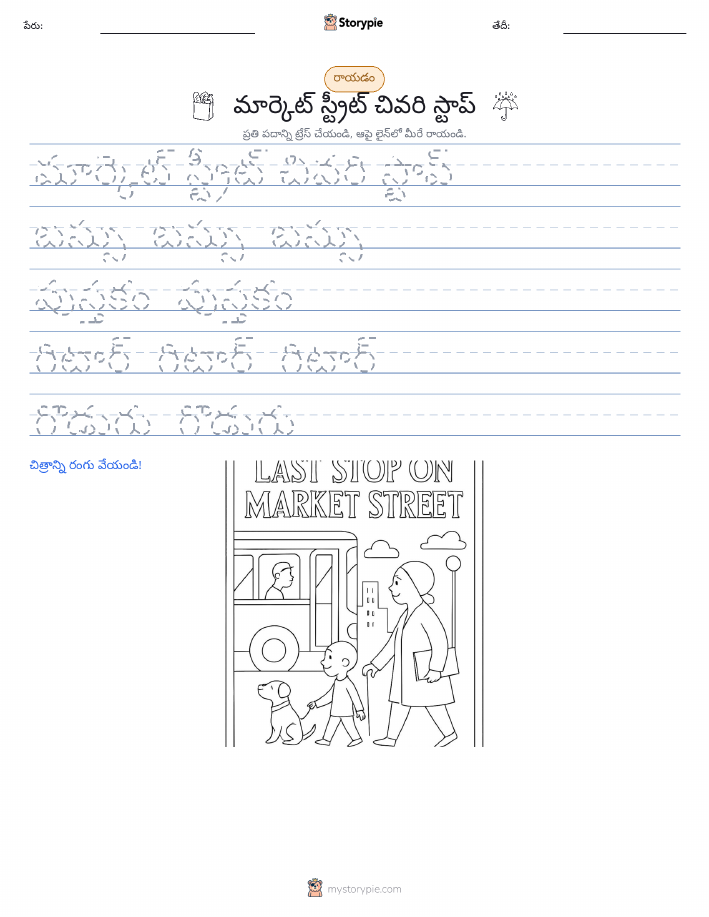 పేరు:
Storypie
తేదీ:
రాయడం
మార్కెట్ స్ట్రీట్ చివరి స్టాప్
ప్రతి పదాన్ని ట్రేస్ చేయండి, ఆపై లైన్‌లో మీరే రాయండి.
మార్కెట్ స్ట్రీట్ చివరి స్టాప్
బస్సు బస్సు బస్సు
పుస్తకం పుస్తకం
గిటార్ గిటార్ గిటార్
గొడుగు గొడుగు
చిత్రాన్ని రంగు వేయండి!
LAST STOP ON
MARKET STREET
mystorypie.com